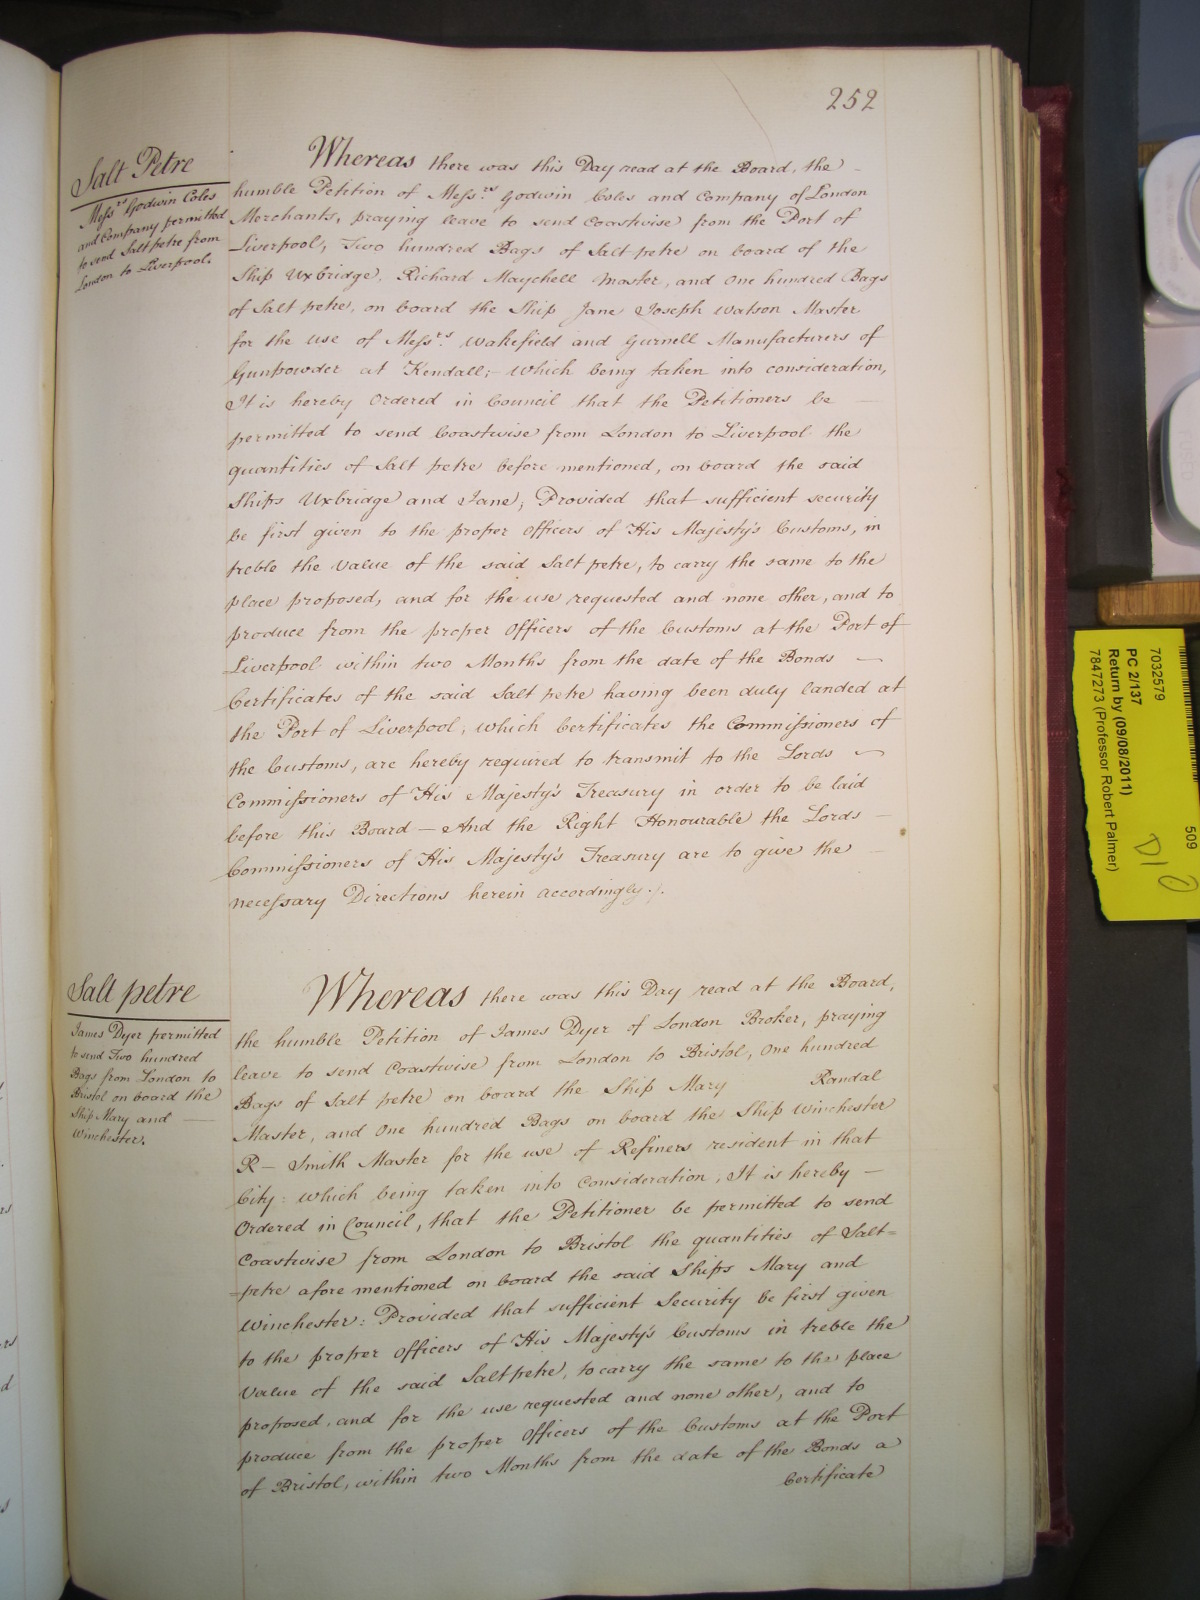 252
Salt Petre
Messrs. Godwin Coles
and Company permitted
to send Salt petre from
London to Liverpool.
Whereas there was this Day read at the Board, the
humble Petition of Messrs. Godwin Coles and Company of London
Merchants, praying leave to send Coastwise from the Port of
Liverpool, Two hundred Bags of Salt petre on board of the
Ship Uxbridge, Richard Maychell Master, and One hundred Bags
of Salt petre, on board the Ship Jane Joseph Watson Master
for the use of Messrs. Wakefield and Gurnell Manufacturers of
Gunpowder at Kendall; which being taken into consideration,
It is hereby Ordered in Council that the Petitioners be —
permitted to send Coastwise from London to Liverpool the
quantities of Salt petre before mentioned, on board the said
Ships Uxbridge and Jane; Provided that sufficient security
be first given to the proper Officers of His Majesty's Customs, in
treble the Value of the said Salt petre, to carry the same to the
place proposed, and for the use requested and none other, and to
produce from the proper Officers of the Customs at the Port of
Liverpool within two Months from the date of the Bonds —
Certificates of the said Salt petre having been duly landed at
the Port of Liverpool, which Certificates the Commissioners of
the Customs, are hereby required to transmit to the Lords —
Commissioners of His Majesty's Treasury in order to be laid
before this Board — And the Right Honourable the Lords —
Commissioners of His Majesty's Treasury are to give the —
necessary Directions herein accordingly ./.
Salt petre
James Dyer permitted
to send Two hundred
Bags from London to
Bristol on board the
Ship Mary and —
Winchester.
Whereas there was this Day read at the Board,
the humble Petition of James Dyer of London Broker, praying
leave to send Coastwise from London to Bristol, One hundred
Bags of Salt petre on board the Ship Mary Randal
Master, and One hundred Bags on board the Ship Winchester
R — Smith Master for the use of Refiners resident in that
City: which being taken into Consideration, It is hereby —
Ordered in Council, that the Petitioner be permitted to send
Coastwise from London to Bristol the quantities of Salt=
=petre afore mentioned on board the said Ships Mary and
Winchester: Provided that sufficient Security be first given
to the proper Officers of His Majesty's Customs in treble the
Value of the said Salt petre, to carry the same to the place
proposed, and for the use requested and none other, and to
produce from the proper Officers of the Customs at the Port
of Bristol, within two Months from the date of the Bonds a
Certificate
7032579
PC 2/137
Return by (09/08/2011)
7847273 (Professor Robert Palmer)
509